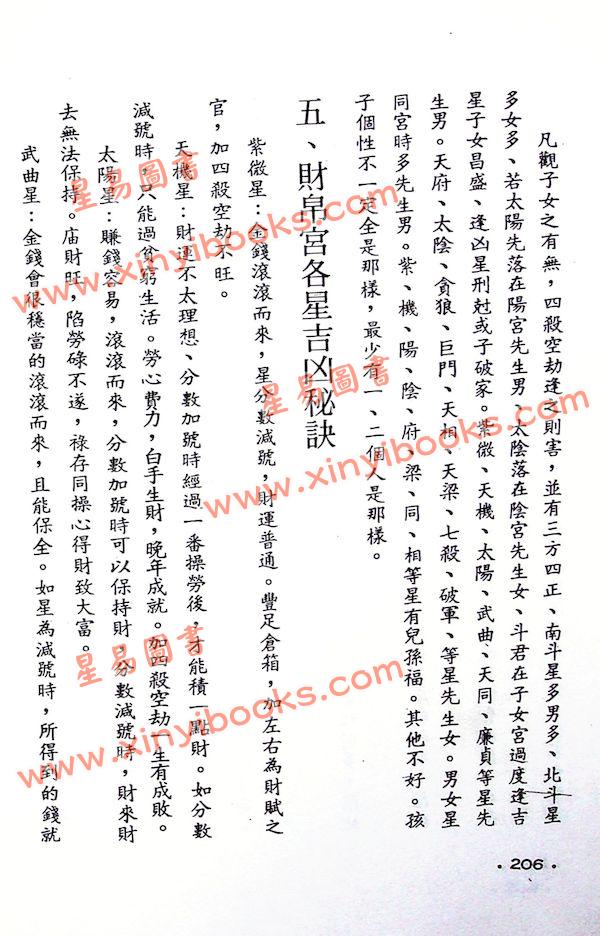 凡觀子女之有無，四殺空劫逢之則害，並有三方四正、南斗星多男多、北斗星
多女多、若太陽先落在陽宮先生男、太陰落在陰宮先生女、斗君在子女宮過度逢吉
星子女昌盛、逢凶星刑尅或子破家。紫微、天機、太陽、武曲、天同、廉貞等星先
生男。天府、太陰、貪狼、巨門、天相、天梁、七殺、破軍、等星先生女。男女星
同宮時多先生男。紫、機、陽、陰、府、梁、同、相等星有兒孫福。其他不好。孩
子個性不一定全是那樣，最少有一、二個人是那樣。
五、財帛宮各星吉凶秘訣
紫微星：金錢滾滾而來，星分數減號，財運普通。豐足倉箱，加左右為財賦之
官，加四殺空劫不旺。
天機星：財運不太理想、分數加號時經過一番操勞後，才能積一點財。如分數
減號時，只能過貧窮生活。勞心費力，白手生財，晚年成就。加四殺空劫一生有成敗。
太陽星：賺錢容易，滾滾而來，分數加號時可以保持財，分數減號時，財來財
去無法保持。庙財旺，陷勞碌不遂，祿存同操心得財致大富。
武曲星：金錢會很穩當的滾滾而來，且能保全。如星為減號時，所得到的錢就
·206·
星易圖書
www.xinyibooks.com
星易圖書
www.xinyibooks.com
星易圖書
www.xinyibooks.com